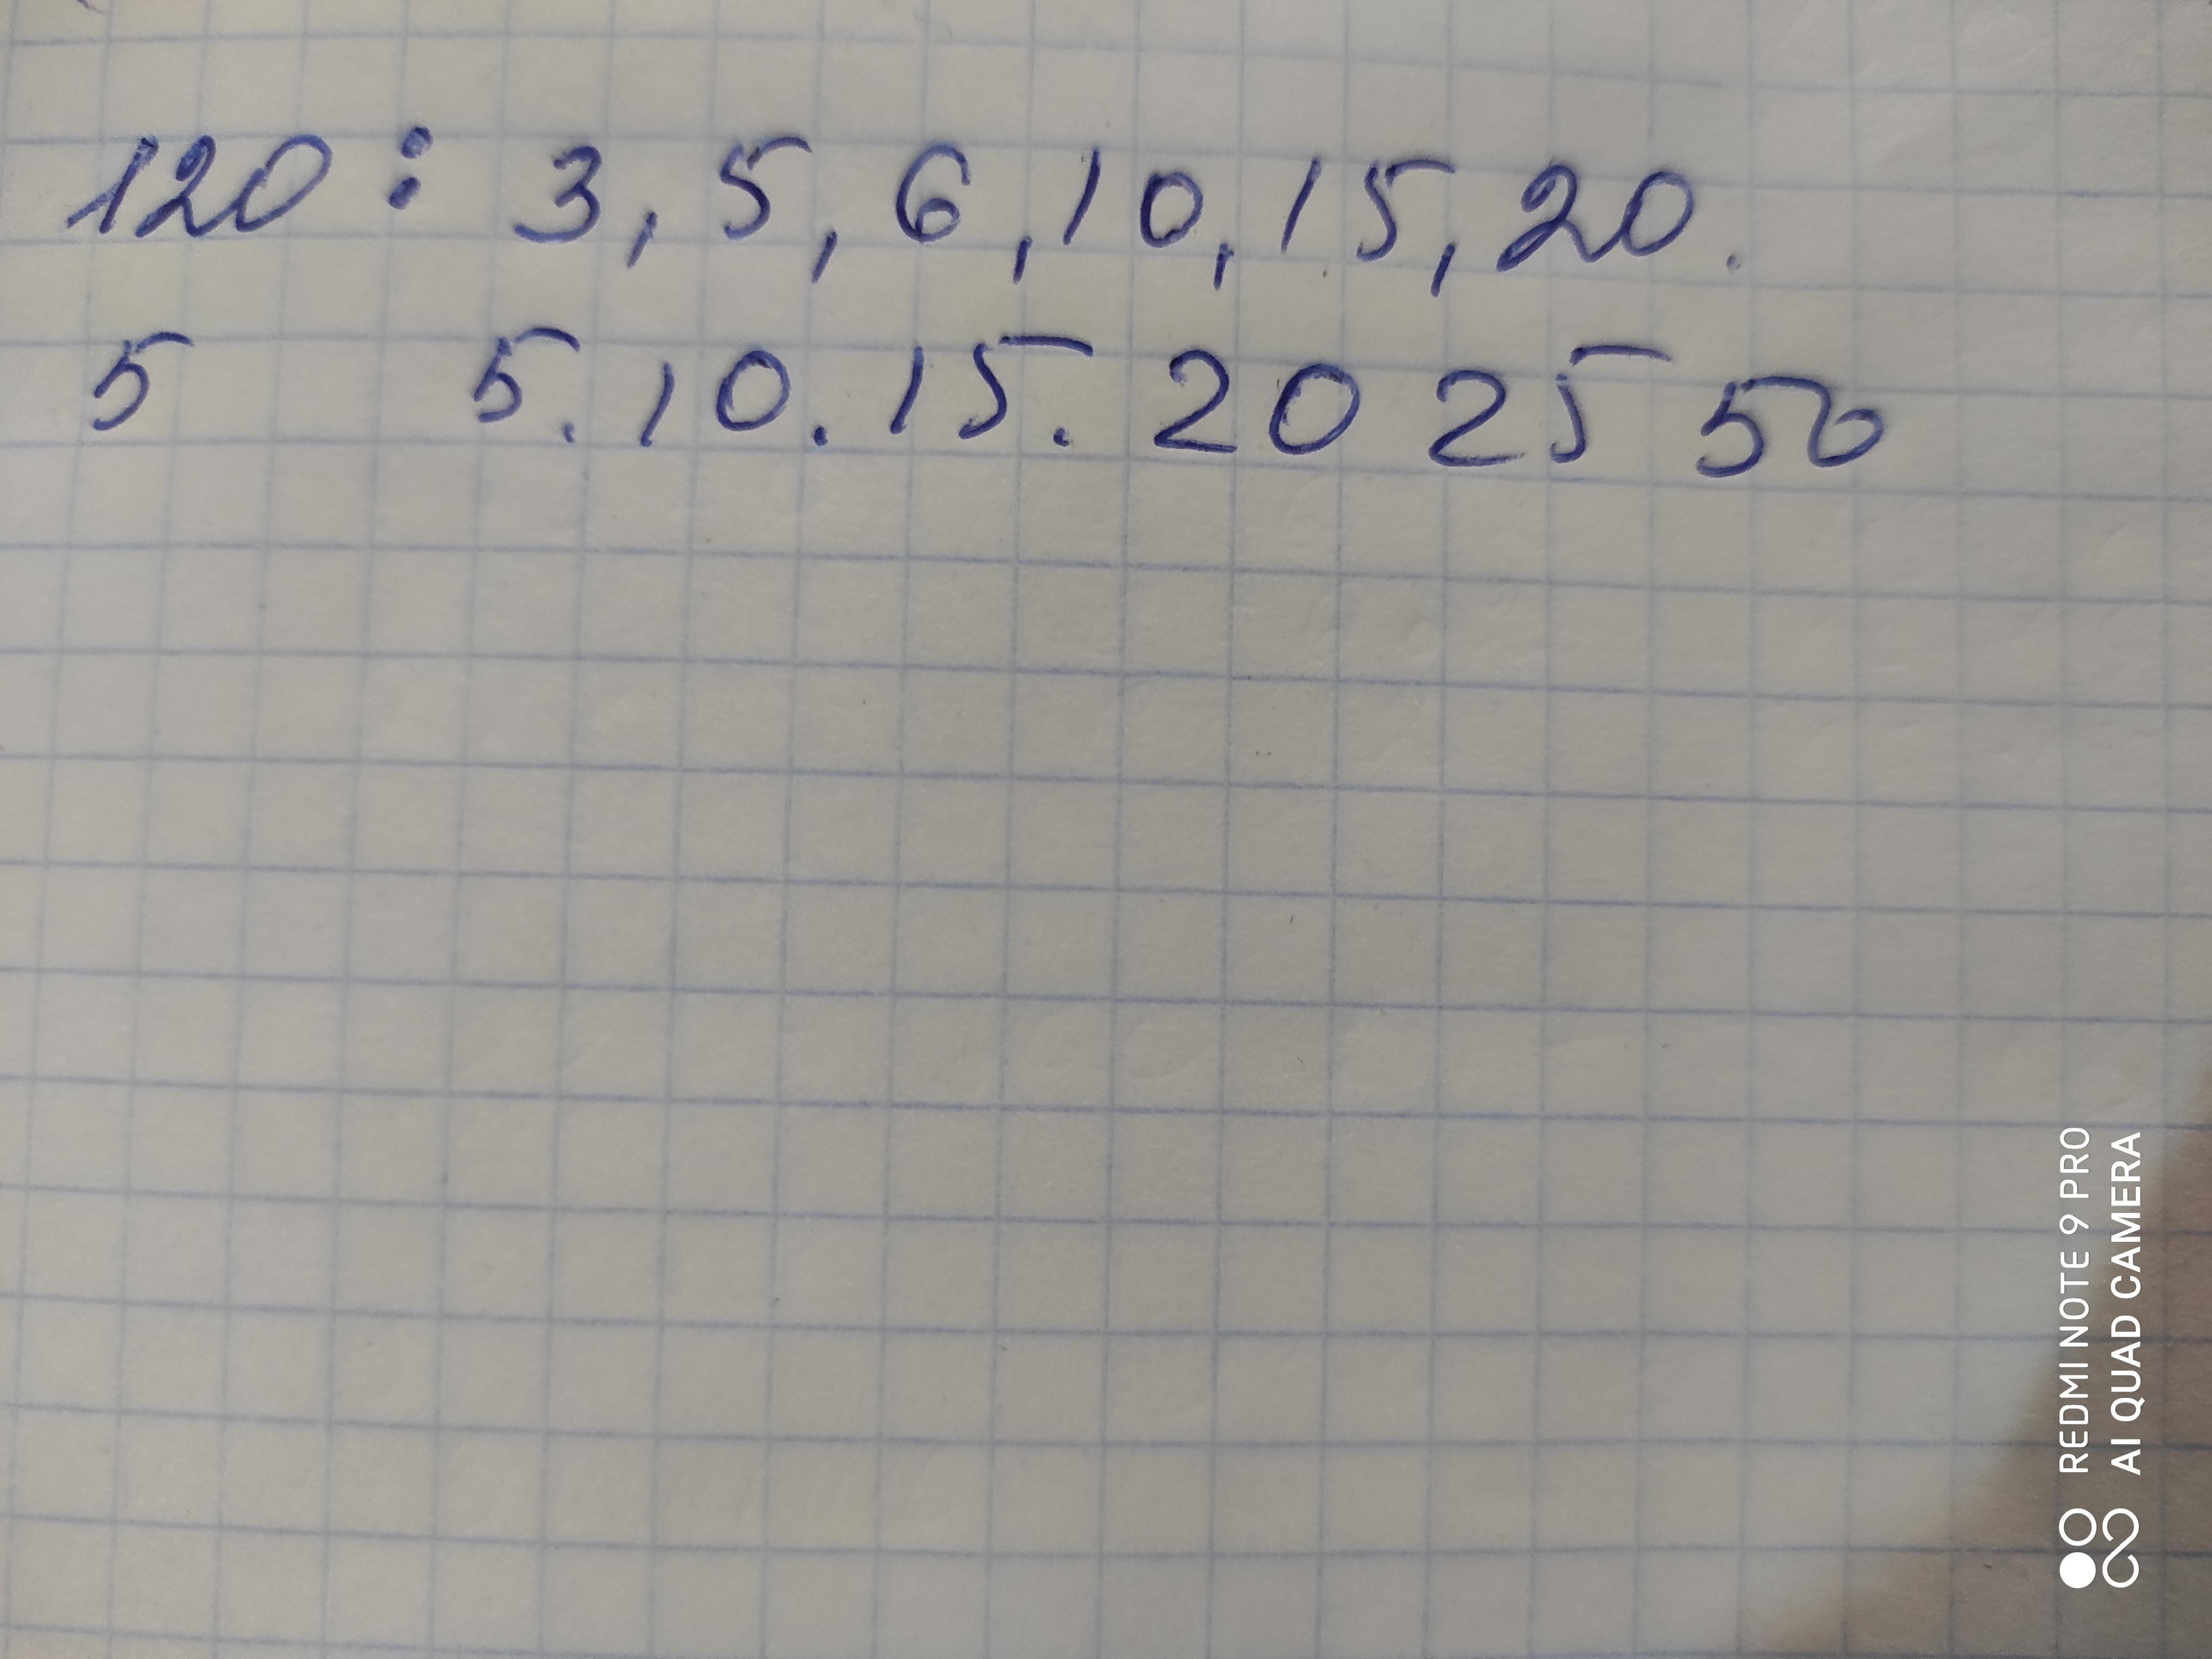 120 : 3, 5, 6, 10, 15, 20.
5 5. 10. 15. 20 25 50
REDMI NOTE 9 PRO
AI QUAD CAMERA